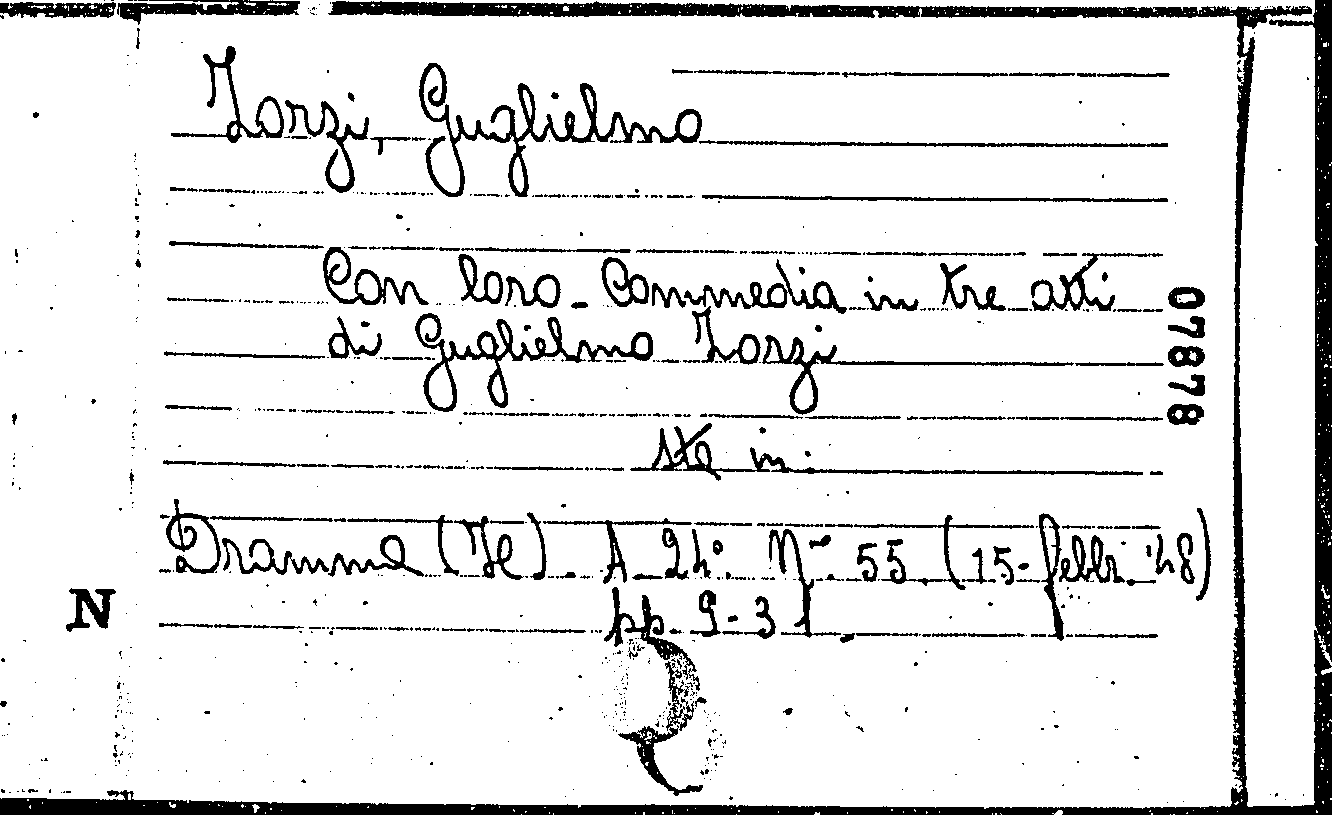 Zorzi, Guglielmo
Con loro - Commedia in tre atti
di Guglielmo Zorzi
sta in:
Dramma (Il). A. 24º. Nº 55 (15-febbr. '48)
pp. 9-31.
07878
N